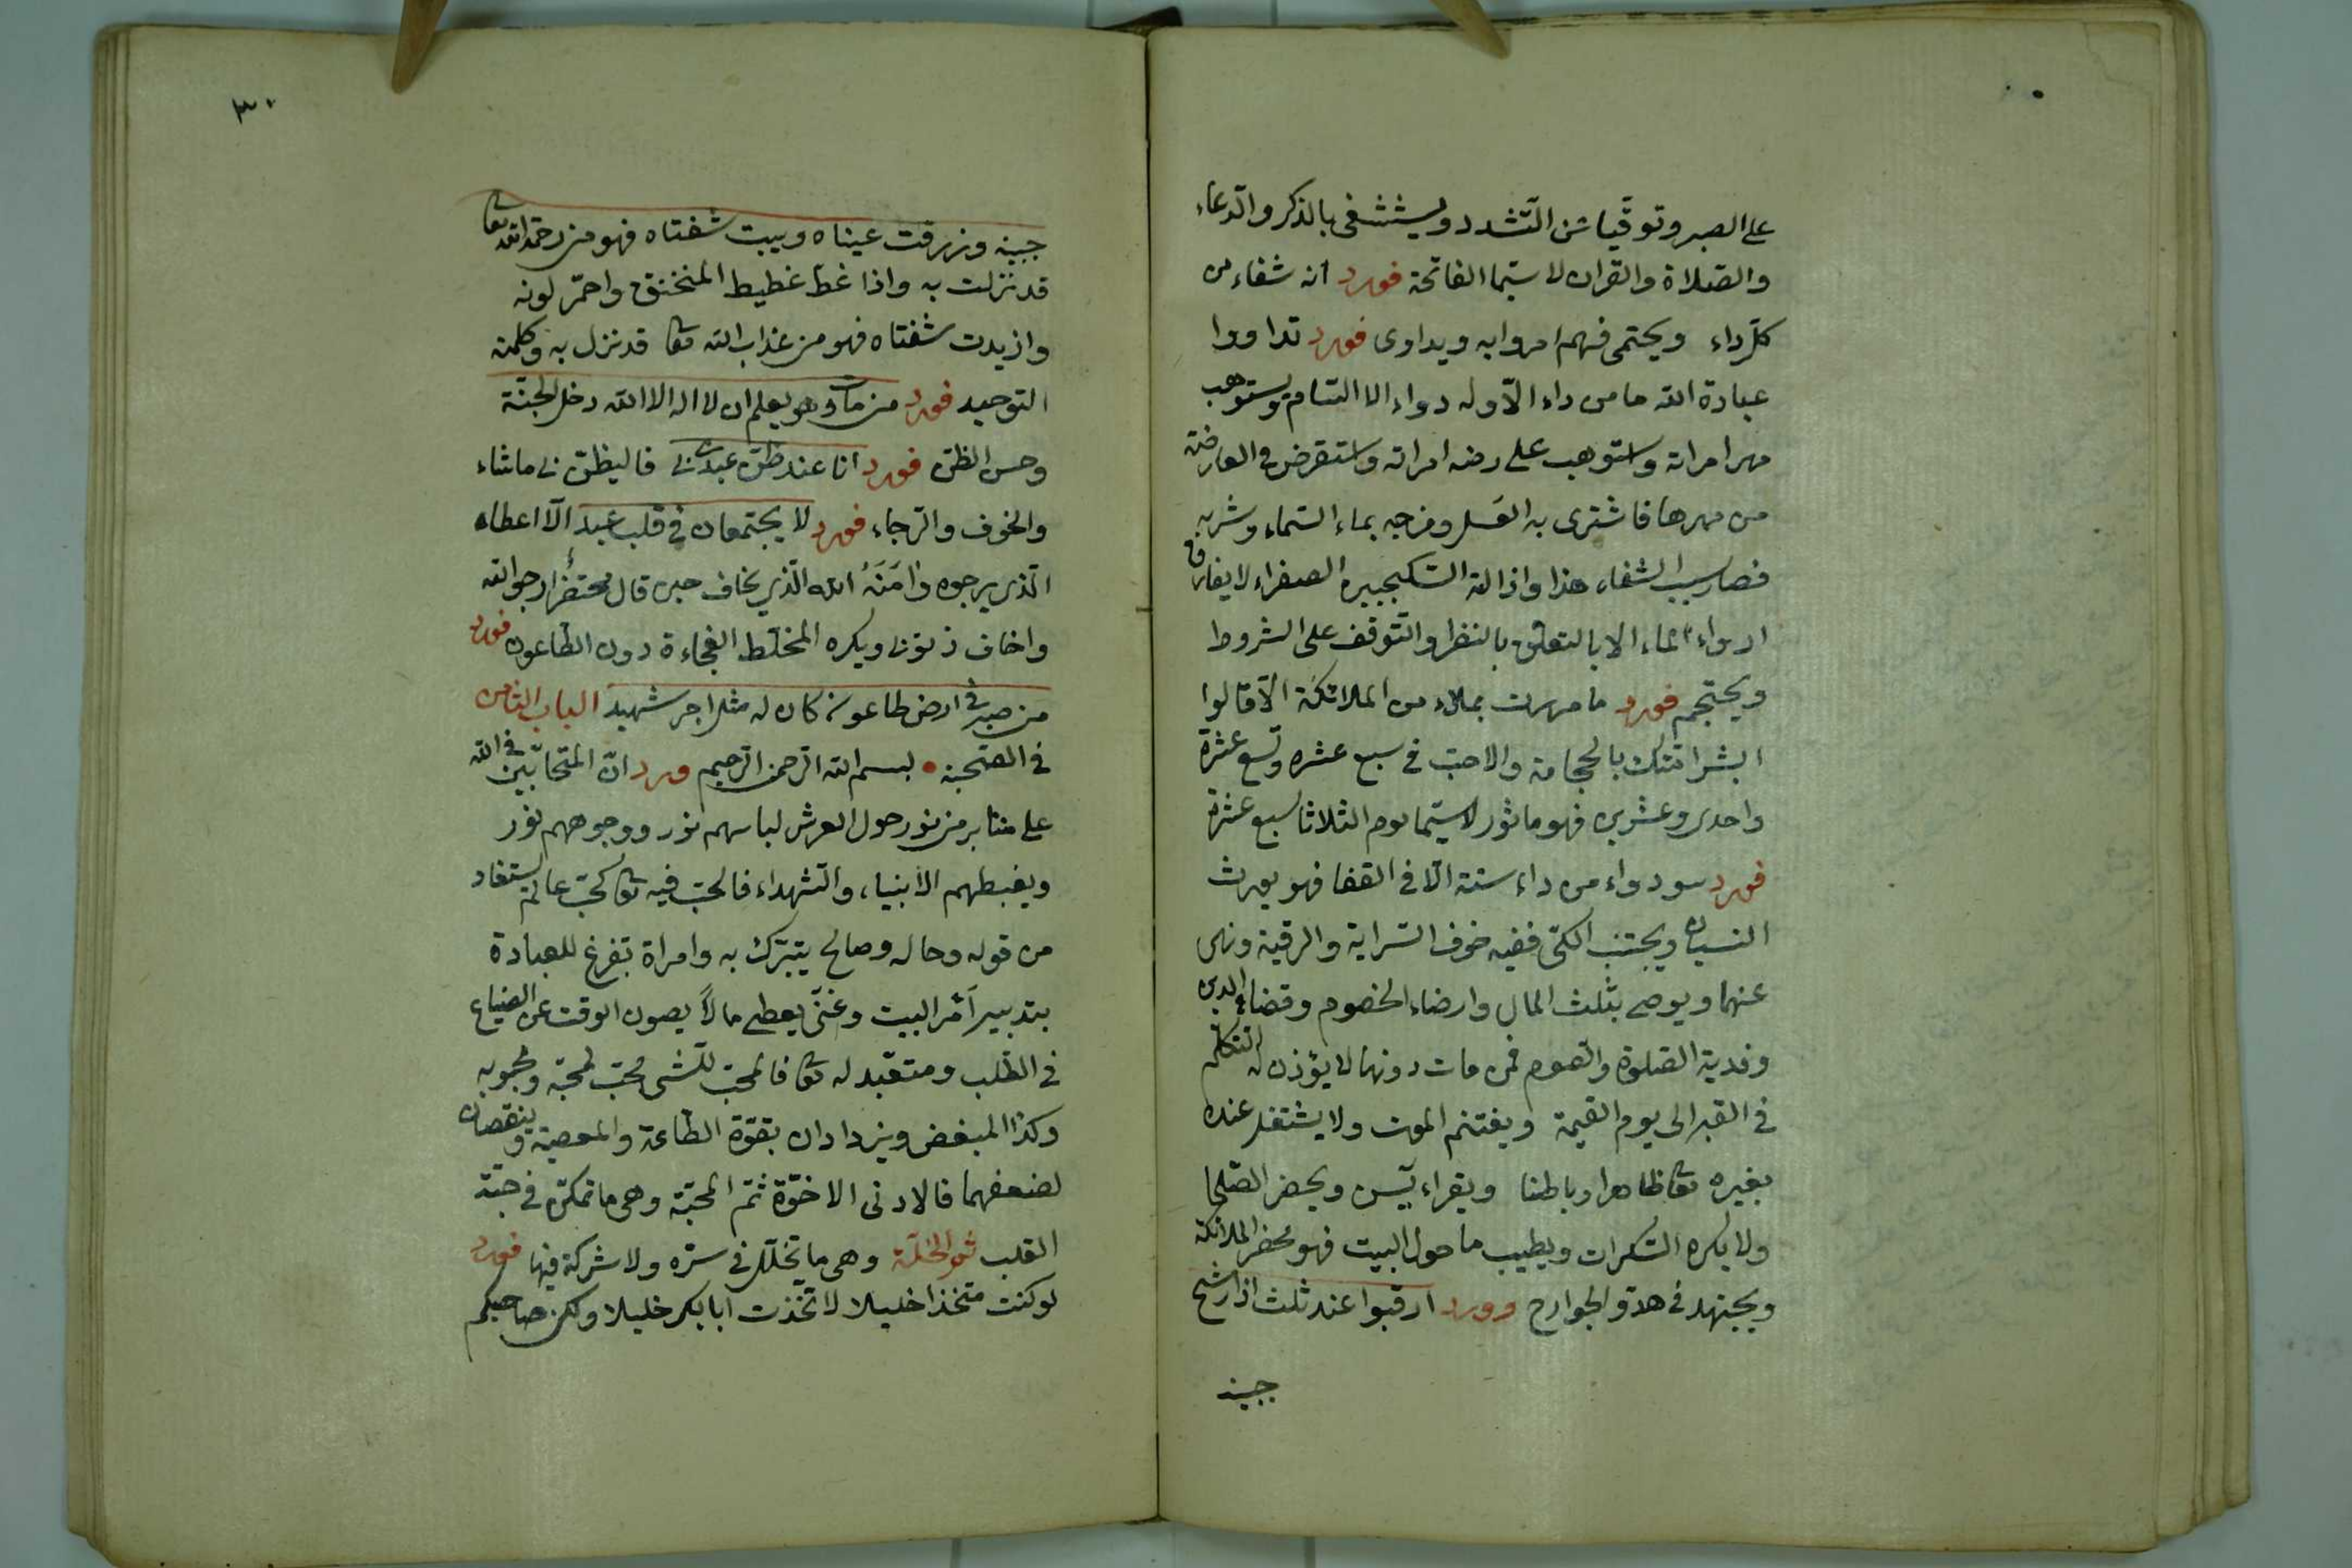 على الصبر وتوقيا عن التشدد ويستشفى بالذكر والدعاء
والصلاة والقران لا سيما الفاتحة فورد انه شفاء من
كل داء ويحتمى فهم امروا به ويداوى فورد تداووا
عباد الله ما من داء الا وله دواء الا السام ويستوهب
مهر امراته واستوهب على رضه امراته واستقرض في العارضة
من مهرها فاشترى به العسل ومزجه بماء السماء وشربه
فصار سبب الشفاء هذا واذالة السكنجبين الصفراء لا يفارق
ارواء الماء الا بالتعلق بالنظر والتوقف على الشروط
ويحتجم فورد ما مررت بملاء من الملائكة الا قالوا
ابشر امتك بالحجامة والاحب في سبع عشره وتسع عشرة
واحدى وعشرين فهو ماثور لا سيما يوم الثلاثا سبع عشرة
فورد دواء من داء سنة الا في القفا فهو يورث
النسيان ويجتنب الكى ففيه خوف السراية والرقية ونهى
عنهما ويوصى بثلث المال وارضاء الخصوم وقضاء الدين
وفدية الصلوة والصوم فمن مات دونها لا يؤذن له التكلم
في القبر الى يوم القيمة ويغتنم الموت ولا يشتغل عنده
بغيره تعا ظاهرا وباطنا ويقراء يس ويحضر الصلحا
ولا يكره السكرات ويطيب ما حول البيت فهو محضر الملائكة
ويجتهد في هدو الجوارح وورد ارقبوا عند ثلث اذا رشح
جبينه
٣٠
جبينه وزرفت عيناه ويبست شفتاه فهو من رحمة الله تعا
قد نزلت به واذا غط غطيط المنخنق واحمر لونه
وازبدت شفتاه فهو من عذاب الله تعا قد نزل به وكلمة
التوحيد فورد من مات وهو يعلم ان لا اله الا الله دخل الجنة
وحسن الظن فورد انا عند ظن عبدى بى فاليظن بى ما شاء
والخوف والرجاء فورد لا يجتمعان في قلب عبد الا اعطاه
الذي يرجوه وامنه الله الذي يخاف حين قال محتضر ارجو الله
واخاف ذنوبى ويكره المختلط الفجاءة دون الطاعون فورد
من صبر في ارض طاعون كان له مثل اجر شهيد الباب الثامن
في الصحبة بسم الله الرحمن الرحيم ورد ان المتحابين في الله
على منابر من نور حول العرش لباسهم نور ووجوههم نور
ويغبطهم الانبياء والشهداء فالحب فيه تعا كحب عالم يستفاد
من قوله وحاله وصالح يتبرك به وامراة تفرغ للعبادة
بتدبير امر البيت وغنى يعطى مالا يصون الوقت عن الضياع
في الطلب ومتعبد له تعا فالمحب للشى محب لمحبه ومحبوبه
وكذا المبغض ويزدادان بقوة الطاعة والمعصية وينقصان
لضعفهما فالادنى الاخوة ثم المحبة وهى ما تمكن في حبة
القلب ثم الخلة وهى ما تخلل في سره ولا شركة فيها فورد
لو كنت متخذا خليلا لاتخذت ابا بكر خليلا ولكن صاحبكم